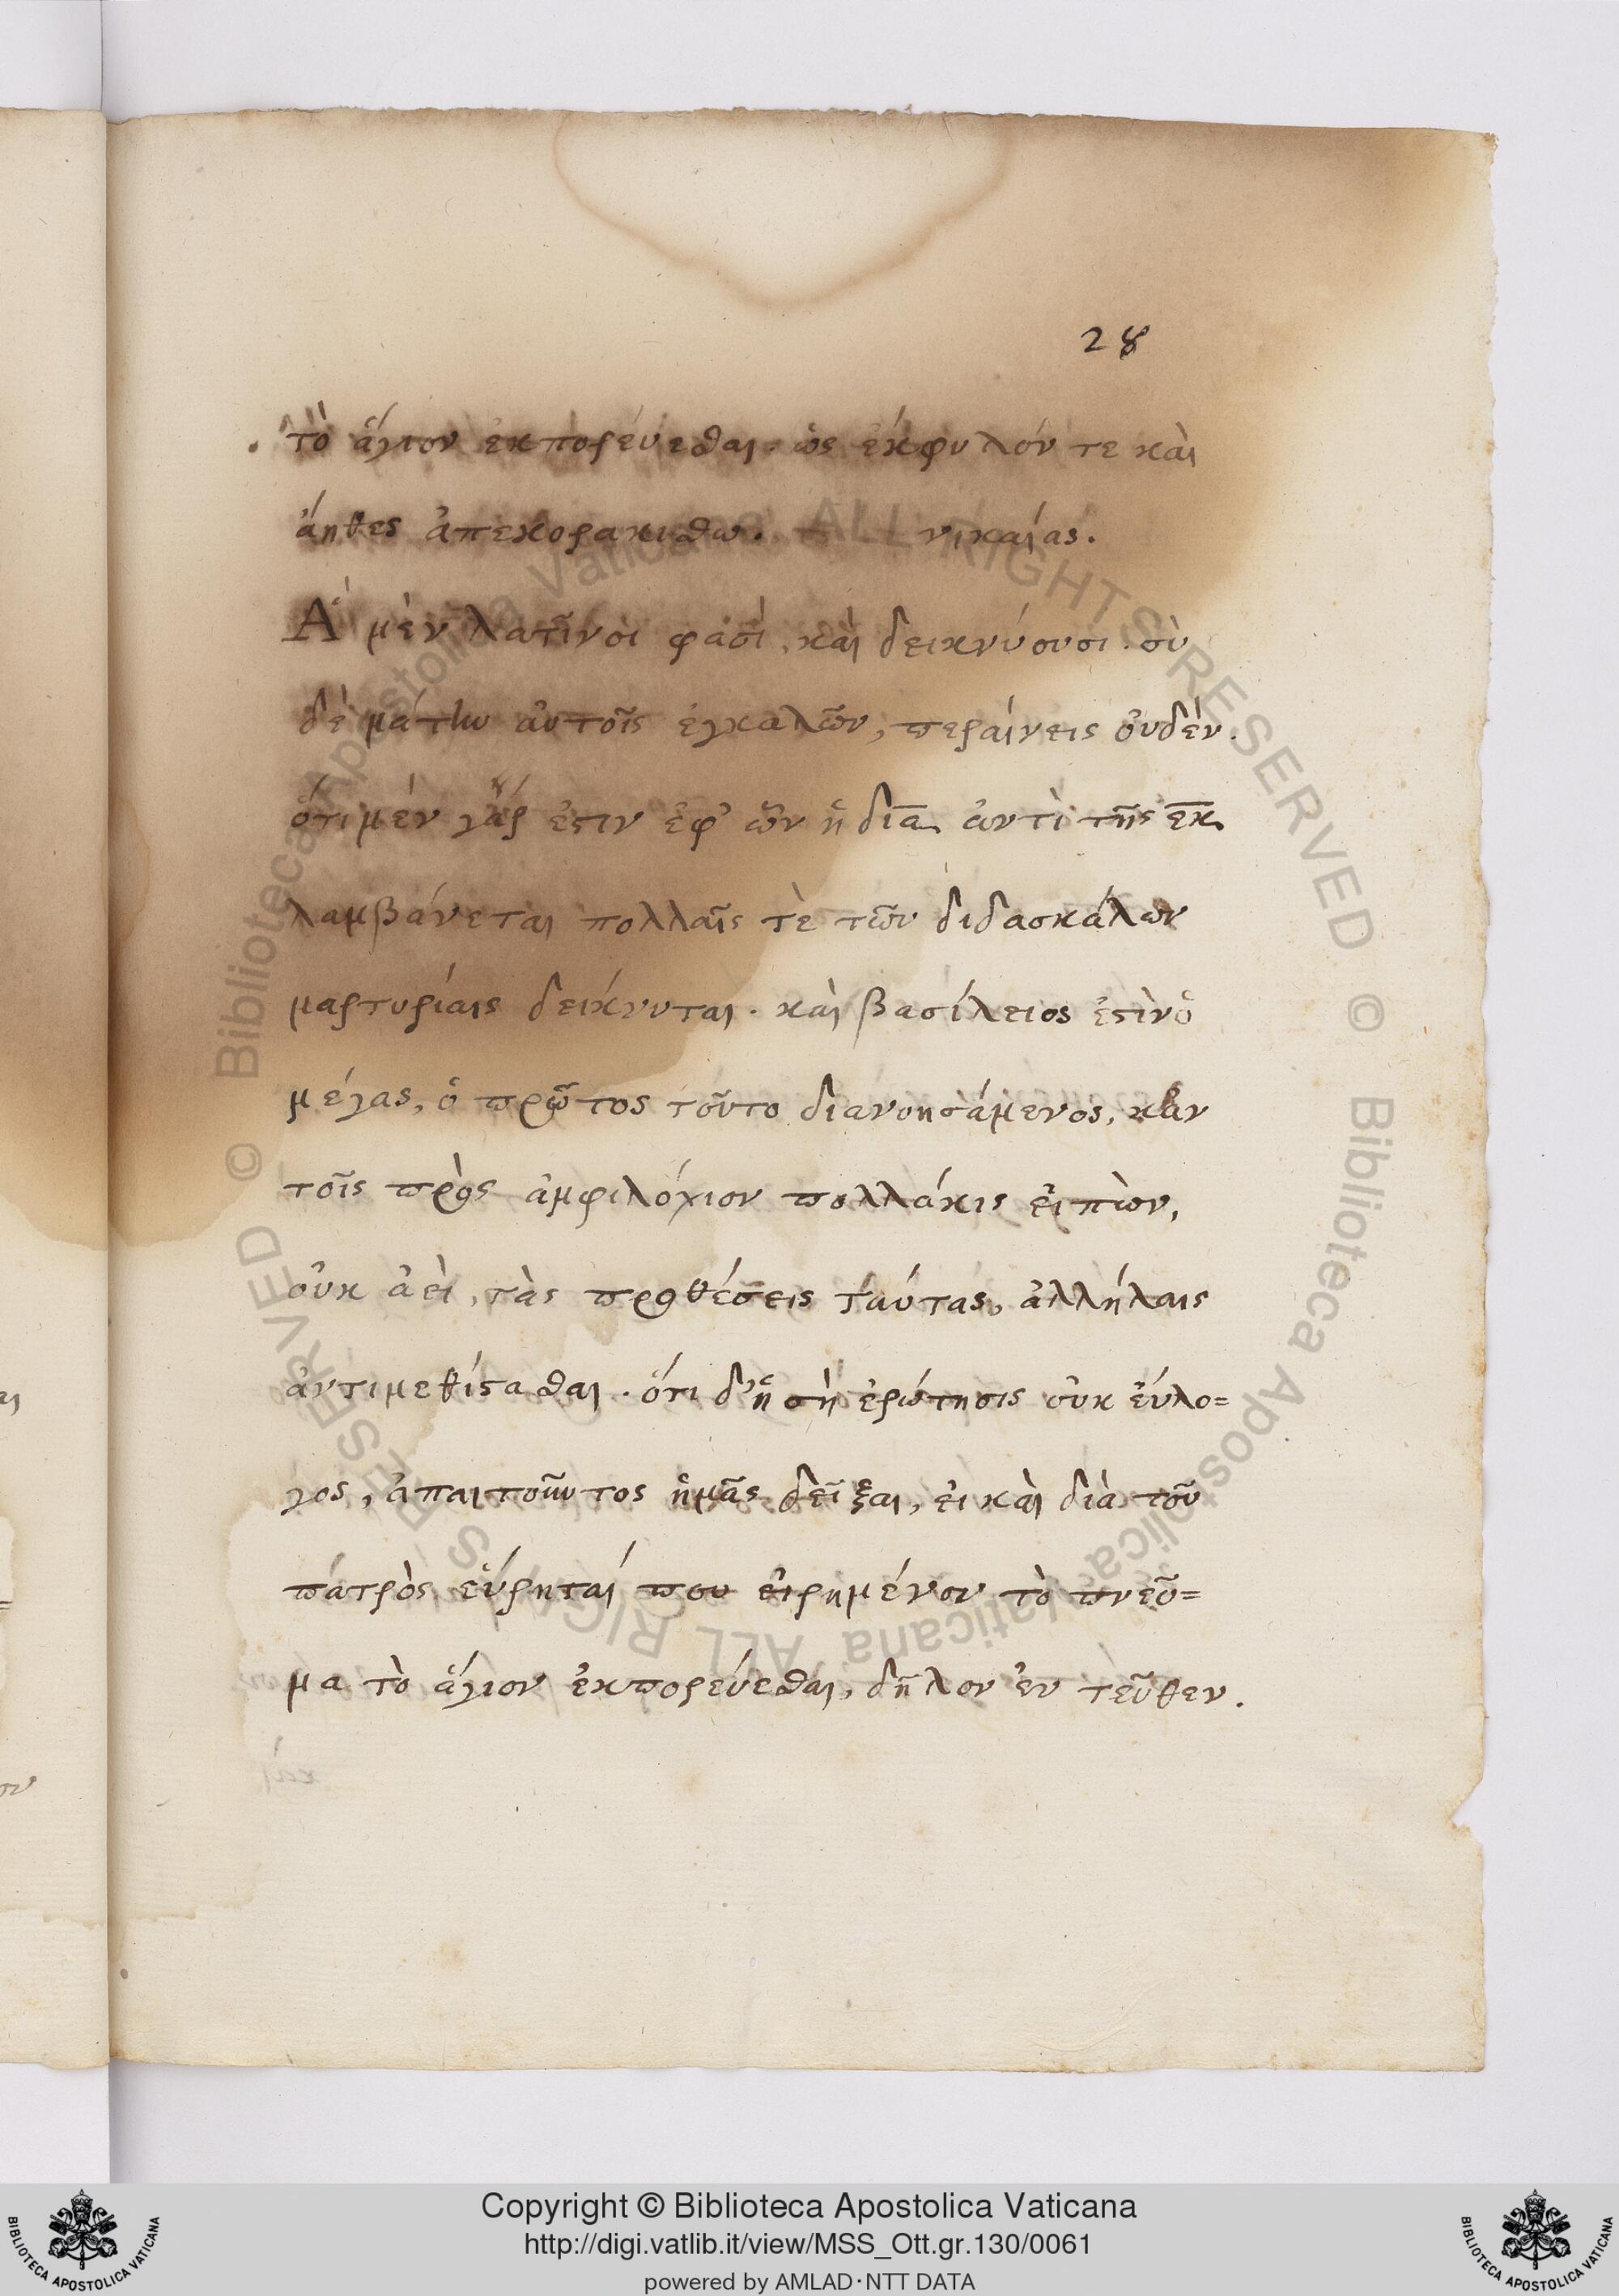 28
τὸ ἅγιον ἐκπορεύεσθαι. ὡς ἐκφυλόν τε καὶ
ἄηθες ἀπεκορακισθω. νικαίας.
Ἃ μὲν λατῖνοι φασὶ, καὶ δεικνύουσι. σὺ
δὲ μάτην αὐτοῖς ἐγκαλῶν, περαίνεις οὐδέν.
ὅτι μὲν γάρ ἐστιν ἐφ' ὧν ἡ δια ἀντὶ τῆς εκ
λαμβάνεται πολλαῖς τὲ τῶν διδασκάλων
μαρτυρίαις δείκνυται. καὶ βασίλειος ἐστὶν ὁ
μέγας, ὁ πρῶτος τοῦτο διανοησάμενος, κἂν
τοῖς πρὸς ἀμφιλόχιον πολλάκις εἰπὼν,
οὐκ ἀεὶ, τὰς προθέσεις ταύτας, ἀλλήλαις
ἀντιμεθίστασθαι. ὅτι δ' ἡ σὴ ἐρώτησις οὐκ εὔλο=
γος, ἀπαιτοῦντος ἡμᾶς δεῖξαι, εἰ καὶ διὰ τοῦ
πατρὸς εὕρηταί που εἰρημένον τὸ πνεῦ=
μα τὸ ἅγιον ἐκπορεύεσθαι, δῆλον ἐντεῦθεν.
© Biblioteca Apostolica Vaticana ALL RIGHTS RESERVED
© Biblioteca Apostolica Vaticana ALL RIGHTS RESERVED
Copyright © Biblioteca Apostolica Vaticana
http://digi.vatlib.it/view/MSS_Ott.gr.130/0061
powered by AMLAD·NTT DATA
BIBLIOTECA APOSTOLICA VATICANA
BIBLIOTECA APOSTOLICA VATICANA